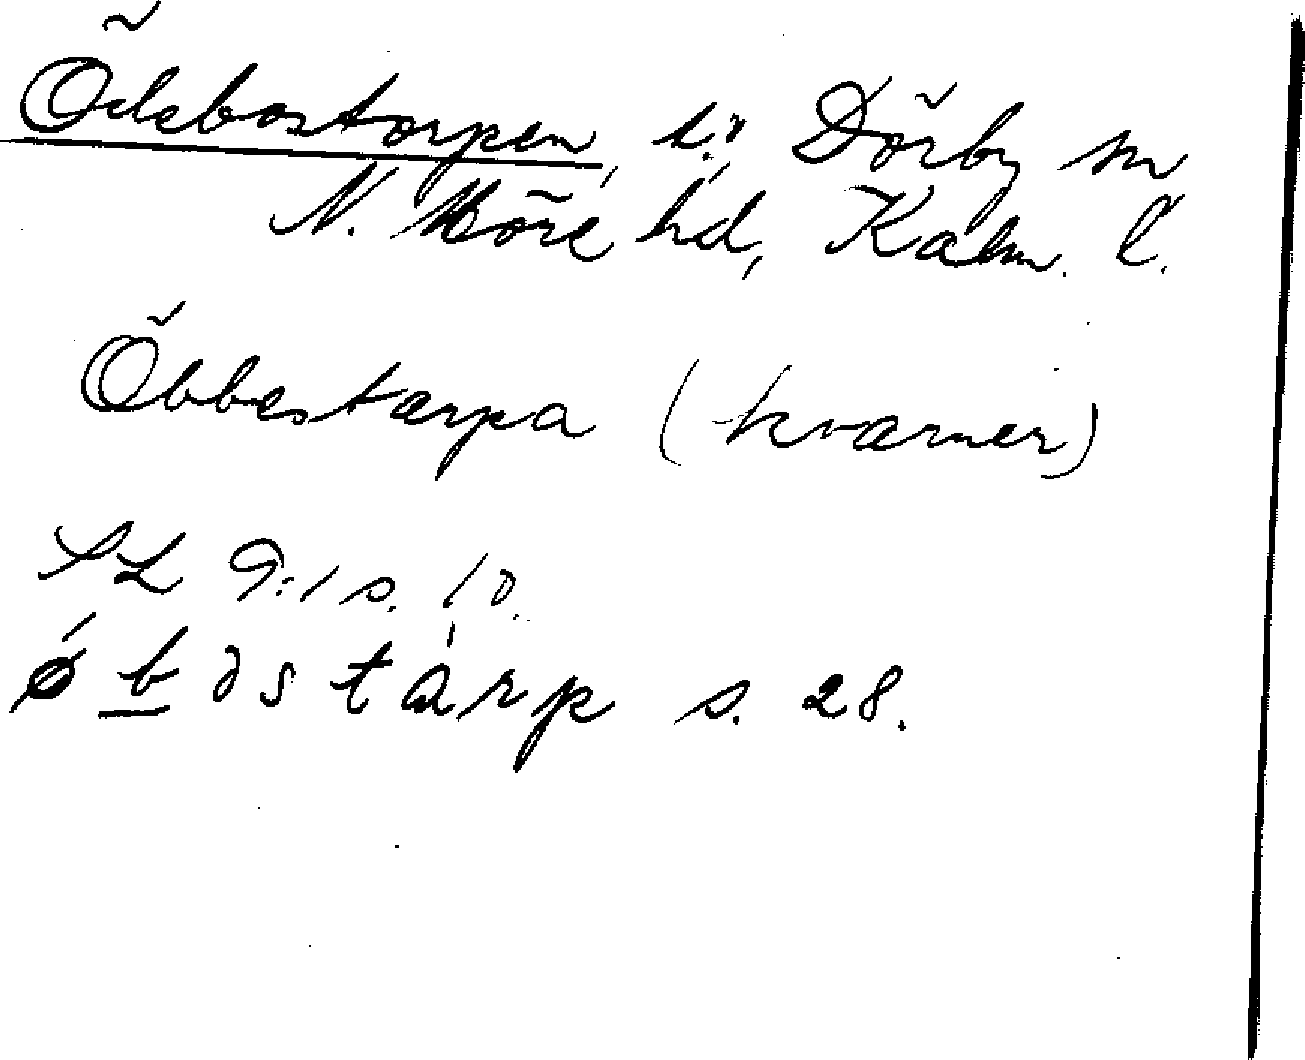 Ödebostorpen, i Dörby sn
N. Möre hd, Kalm. l.
Öbbestarpa (-kvarner)
SL 9:1 s. 10.
ǿ b ə s t à r p s. 28.